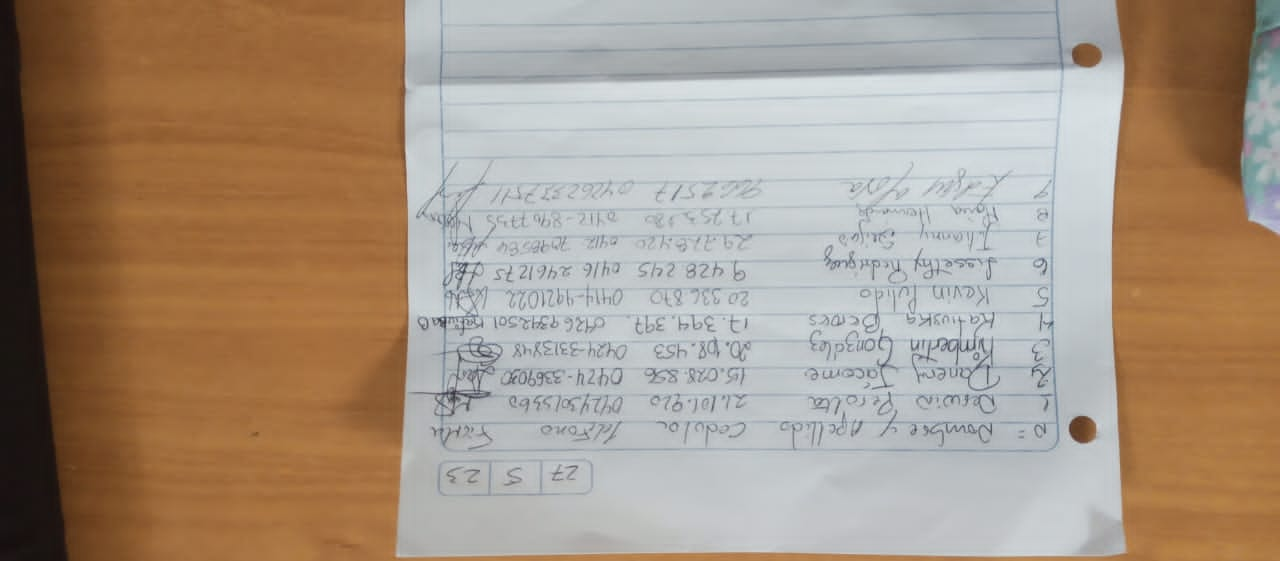 27 5 23
N= Nombre y Apellido Cedula Teléfono Firma
1 Derwin Peralta 21.101.920 04243015360
2 Daneny Jacome 15.028.856 0424-3369030
3 Kimberlin Gonzalez 20.108.453 0424-3313848
4 Katiuska Berros 17.394.397. 04269342501 Katiuska B
5 Kevin Pulido 20.336.870 0414-4921022
6 Lissethy Rodriguez 9 428 245 0416 2461275
7 Jhanny Seijas 29.778.420 0412 7098584
8 Maria Hernandez 17.253.180 0412-8967735
9 9662517 04262377511